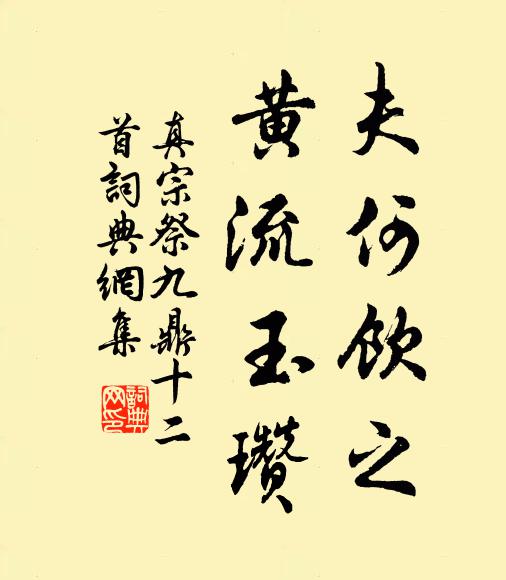 夫何飲之
黃流玉瓚
真宗祭九鼎十二
首詞典網集
詞典
网印